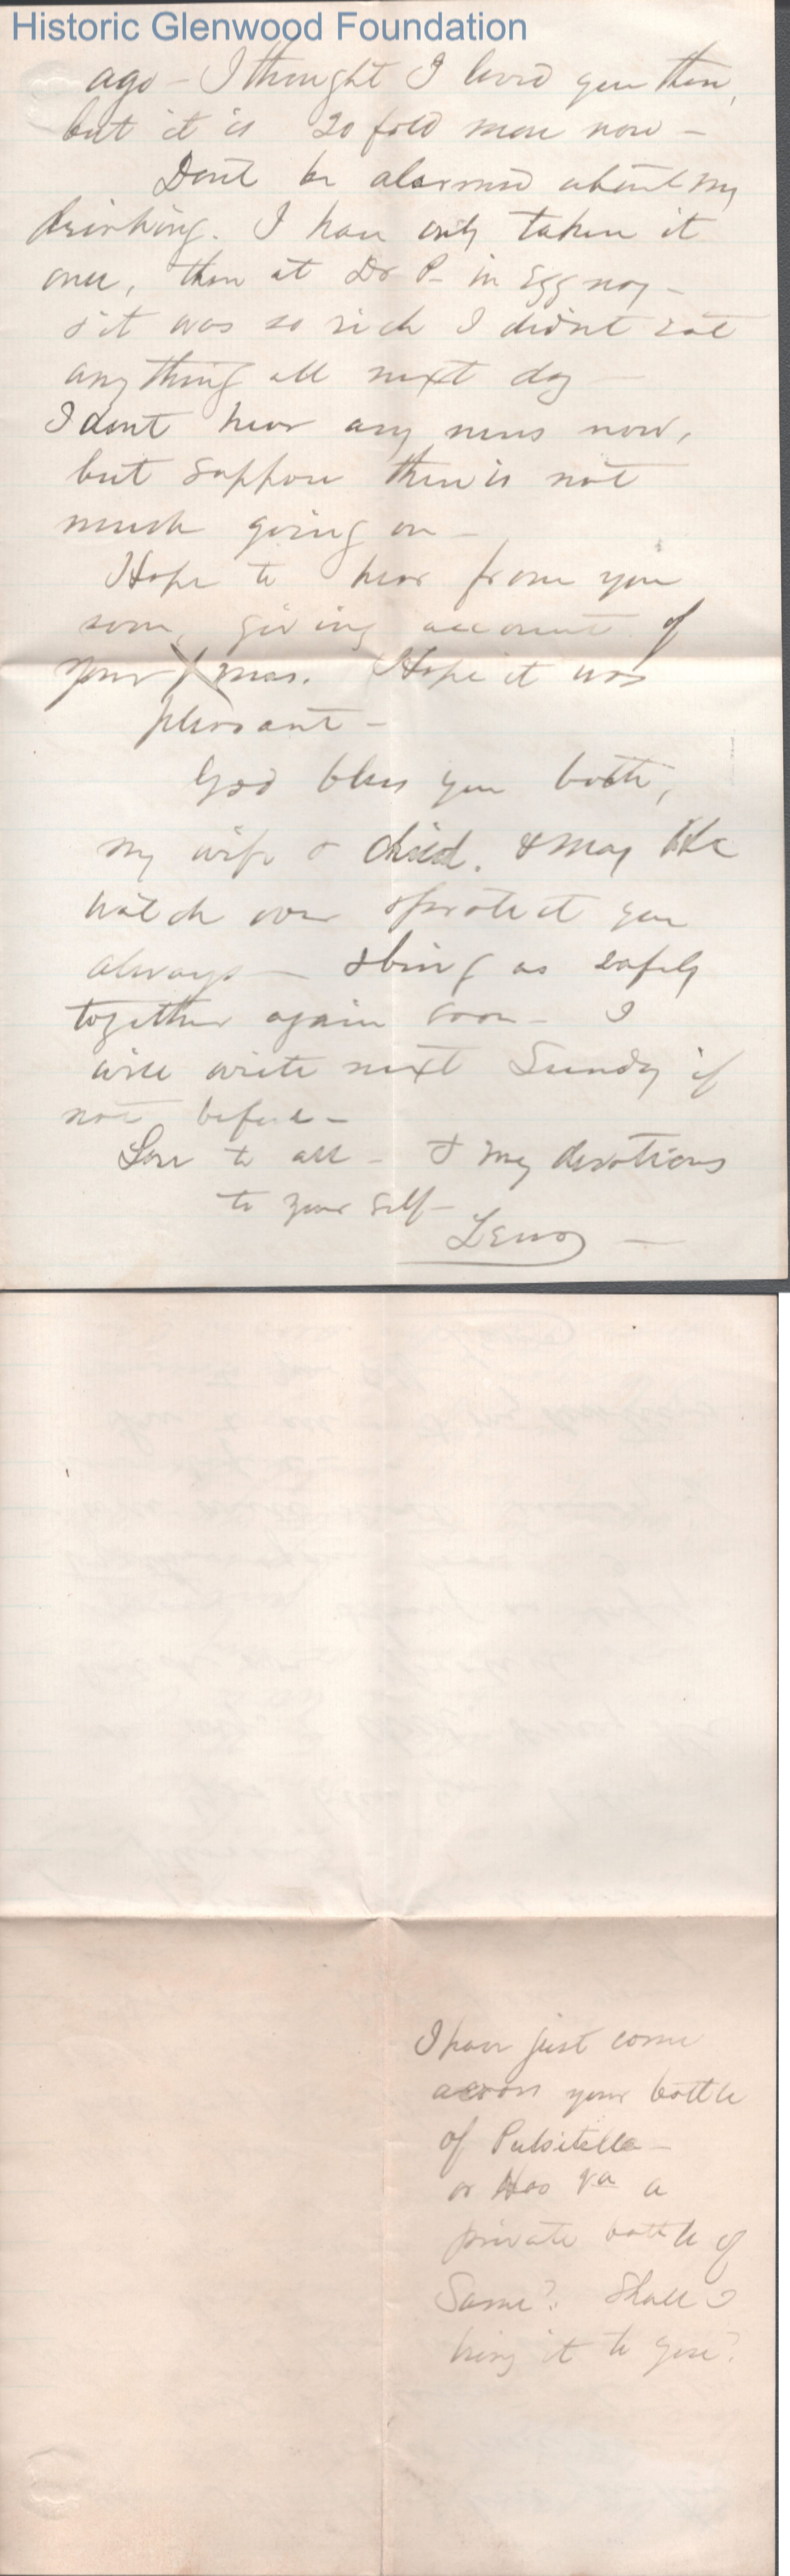 Historic Glenwood Foundation
ago - I thought I loved you then,
but it is 20 fold more now -
Dont be alarmed about my
drinking. I have only taken it
once, then at Dr P- in Egg nog -
& it was so rich I didnt eat
anything all next day -
I dont hear any news now,
but suppose there is not
much going on -
Hope to hear from you
soon, giving account of
your Xmas. Hope it was
pleasant -
God bless you both,
my wife & child. & may He
watch over & protect you
always - & bring us safely
together again soon - I
will write next Sunday if
not before -
Love to all - & my devotions
to your self -
I have just come
across your bottle
of Pulsitella -
or Has a
private bottle of
Same? Shall I
bring it to you?